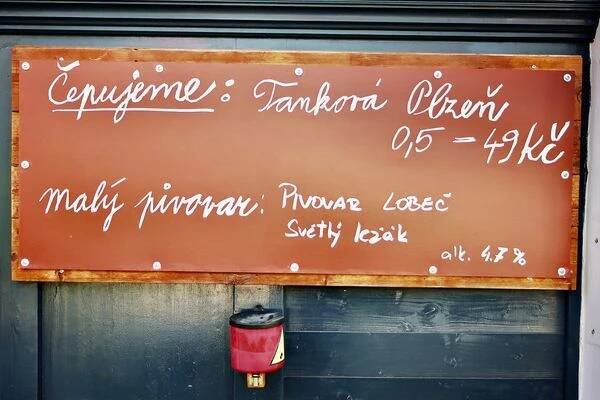 Čepujeme: Tanková Plzeň
0,5 - 49 Kč
Malý pivovar: PIVOVAR LOBEČ
Světlý ležák
alk. 4.7 %